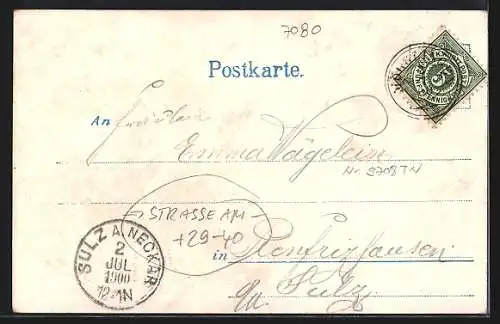 7080
Postkarte.
An Fräulein
Emma Wägelein
Nr. 9708TN
STRASSE AM
+29-40
in Renfrizhausen
Sulz
SULZ A NECKAR
2
JUL
1900
12-1N
5